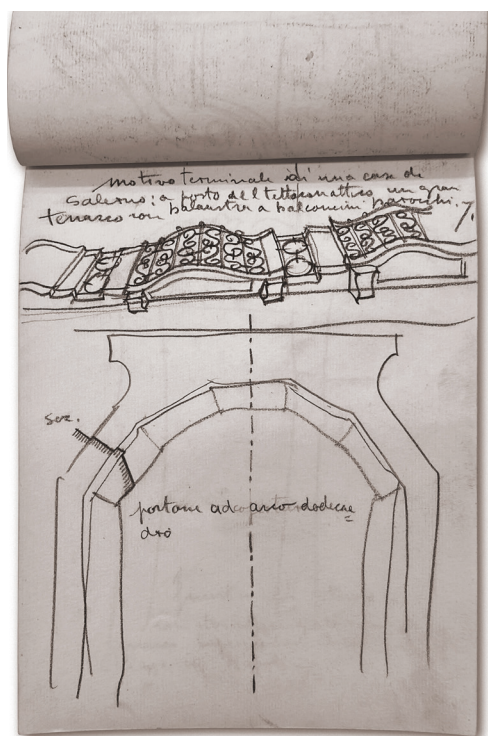 motivo terminale di una casa di
Salerno: a posto del tetto o attico un gran
terrazzo con balaustra a balconcini barocchi.
7.
sez.
portone ad arco dodecae
dro